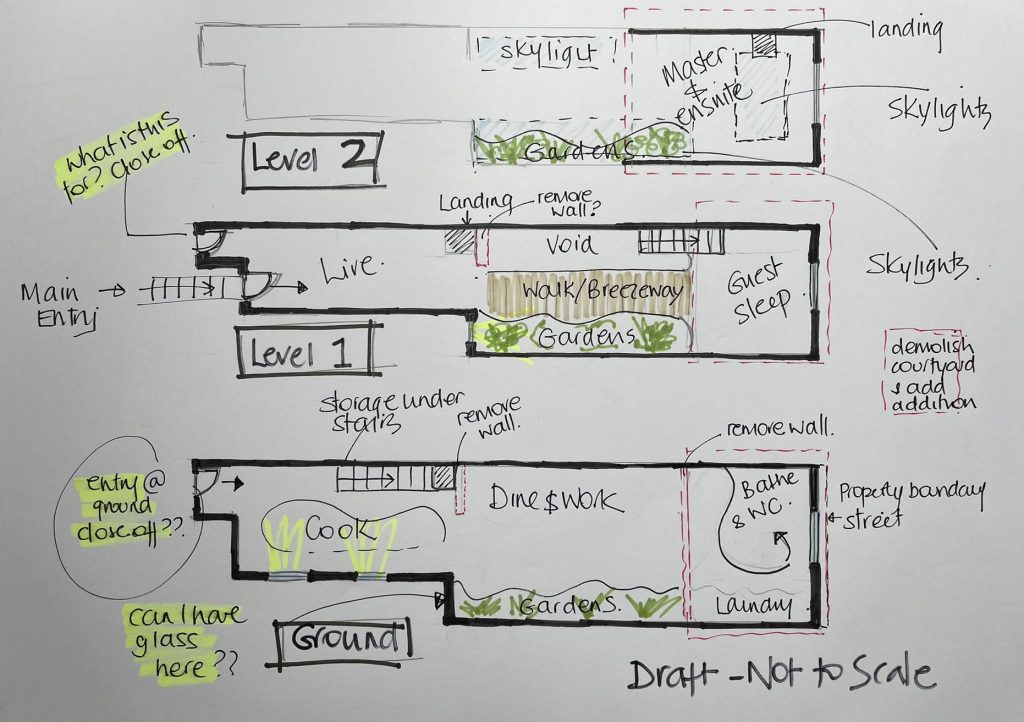 landing
skyligut
Master
&
ensuite
Skylights
what is this
for? Close off.
Level 2
Gardens.
Landing
remove
wall?
Live.
Void
Walk/Breezeway
Guest
sleep
Skylights.
Main
Entry
Level 1
Gardens
demolish
courtyard
& add
addition
storage under
stairs
remove
wall.
remove wall.
entry @
ground
close off??
Cook
Dine & Work
Bathe
& WC.
Property boundary
street
Gardens.
Laundry
can I have
glass
here??
Ground
Draft - Not to Scale